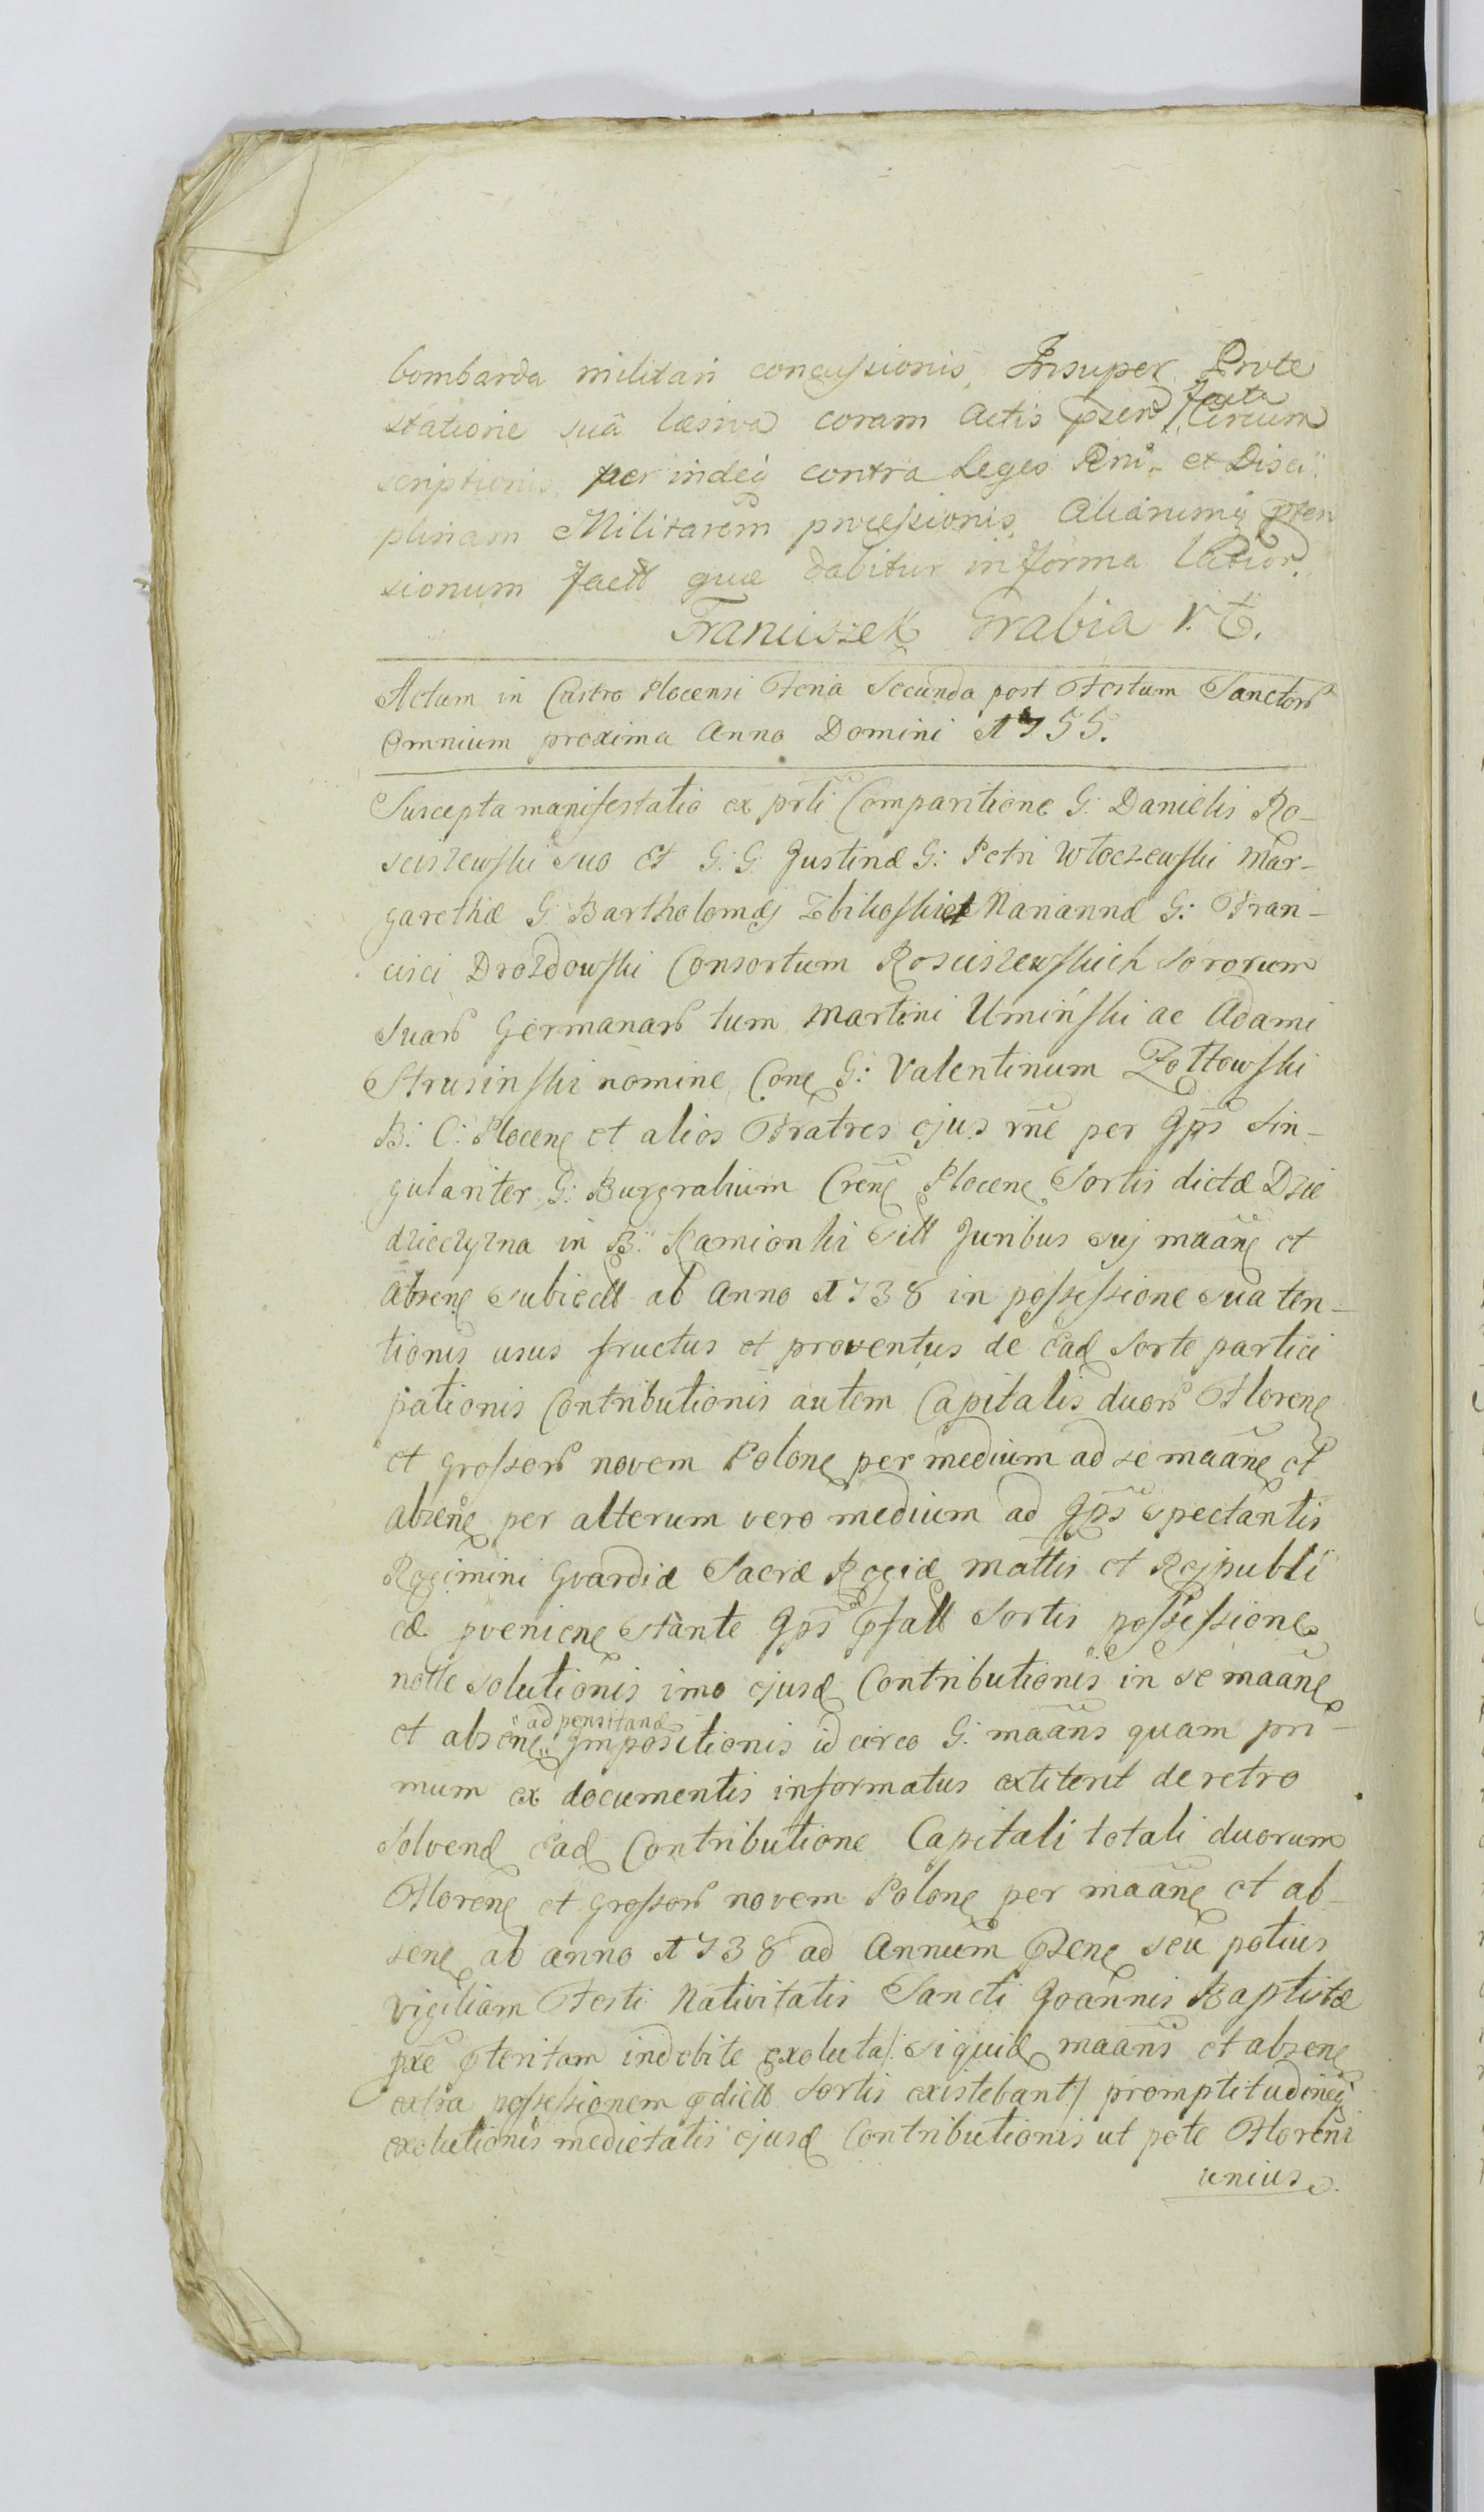 bombarda militari concussionis, Insuper Prote
statione suâ læsiva coram Actis psen facta Circum
scriptionis, per indeq contra Leges Rni et Disci
plinam Militarem processionis, Aliarumq pten
sionum fact quæ dabitur in forma latior.
Franciszek Grabia
Actum in Castro Plocensi Feria Secunda post Festum Sanctor
Omnium proxima Anno Domini 1755.
Suscepta manifestatio ex prti Comparitione G: Danielis Ro-
sciszewski suo et G: G: Justinæ G: Petri Włoczewski Mar-
garethæ G: Bartholomæj Zbikoski et Mariannæ G: Fran-
cisci Drozdowski Consortum Rosciszewskich Sororum
Suar Germanar tum Martini Umiński ac Adami
Strusinski nomine, Con G: Valentinum Zołtowski
B: C: Plocen et alios Fratres ejus rne per Jps Sin-
gulariter G: Burgrabium Cren Plocen Sortis dictæ Dzie
dziczyzna in B: Kamionki Sitt Juribus Suj maan et
absen subiectt ab Anno 1738 in possessione sua ten-
tionis usus fructus et proventus de Ead Sorte partici
pationis Contributionis autem Capitalis duor Floren
et grossor novem Polon per medium ad se maan et
absen per alterum vero medium ad Jps Spectantis
Regimini Gvardiæ Sacræ Regiæ Mattis et Rejpubli
cæ pvenien Stante Jps pfatt Sortis possessione
nolle solutionis imo ejusd Contributionis in se maan
et absen ad pensitand Impositionis id circo G: maans quam pri-
mum ex documentis informatus extiterit de retro
Solvend Ead Contributione Capitali totali duorum
Floren et Grossor novem Polon per maan et ab-
sen ab anno 1738 ad Annum psen seu potius
vigiliam Festi Nativitatis Sancti Joannis Baptistæ
pxe pteritam indebite exoluta /: siquid maans et absen
extra possessionem pdictt Sortis existebant :/ promptitudineq
exolutionis medietatis ejusd Contributionis ut pote Floreni
unius